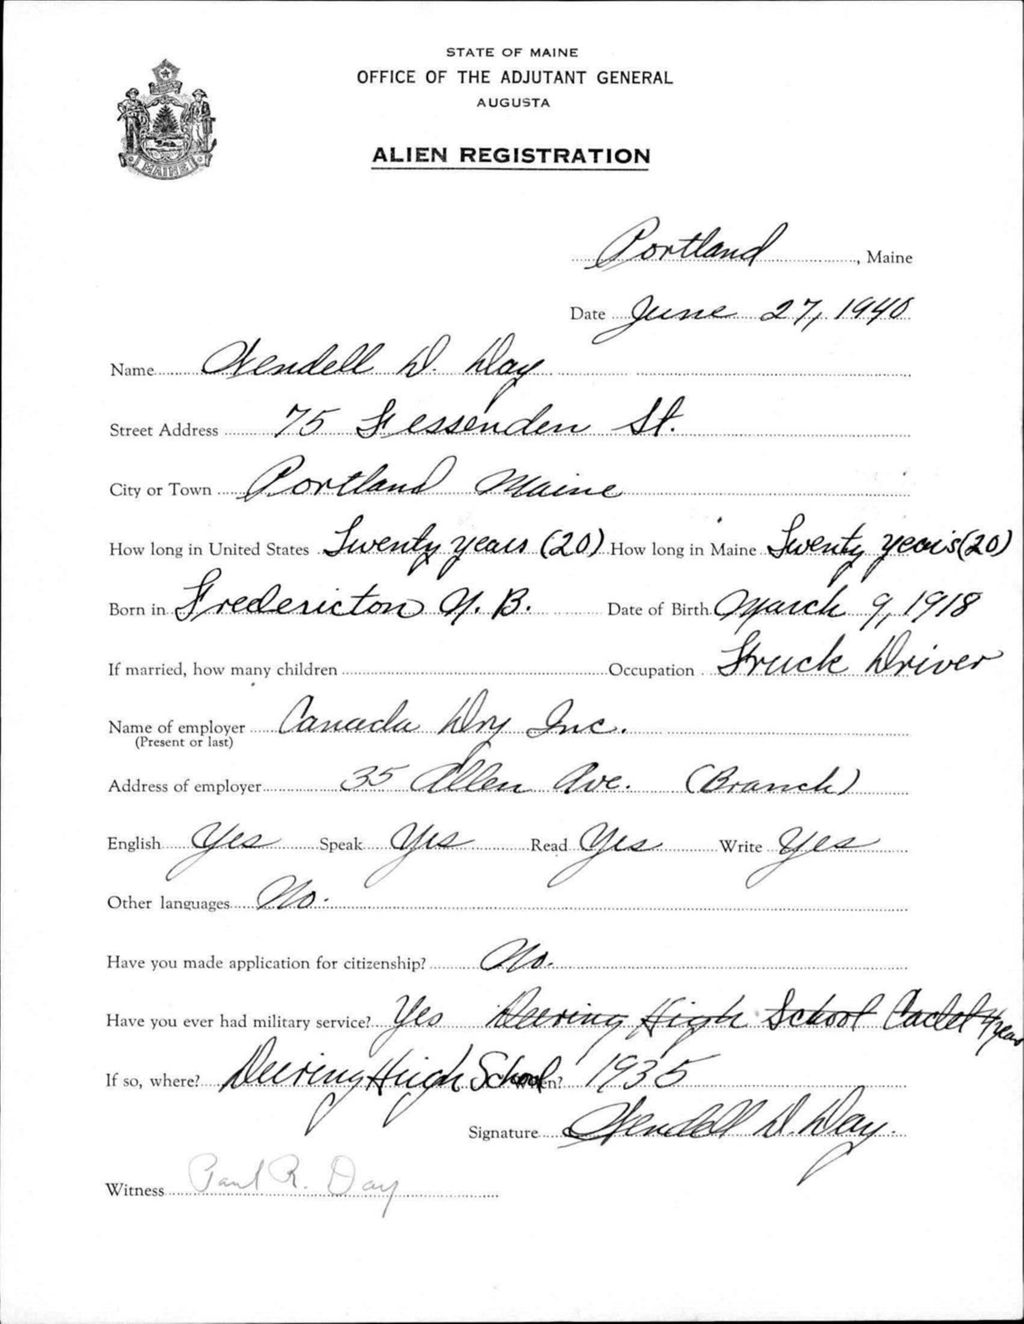 STATE OF MAINE
OFFICE OF THE ADJUTANT GENERAL
AUGUSTA
ALIEN REGISTRATION
MAINE
Portland, Maine
Date June 27, 1940
Name Wendell D. Day
Street Address 75 Fessenden St.
City or Town Portland Maine
How long in United States Twenty years (20) How long in Maine Twenty years (20)
Born in Fredericton N. B. Date of Birth March 9, 1918
If married, how many children Occupation Truck Driver
Name of employer Canada Dry Inc.
(Present or last)
Address of employer 35 Allen Ave. (Branch)
English Yes Speak Yes Read Yes Write Yes
Other languages No.
Have you made application for citizenship? No.
Have you ever had military service? Yes Deering High School Cadet 4 year
If so, where? Deering High School when? 1935
Signature Wendell D. Day
Witness Paul R. Day